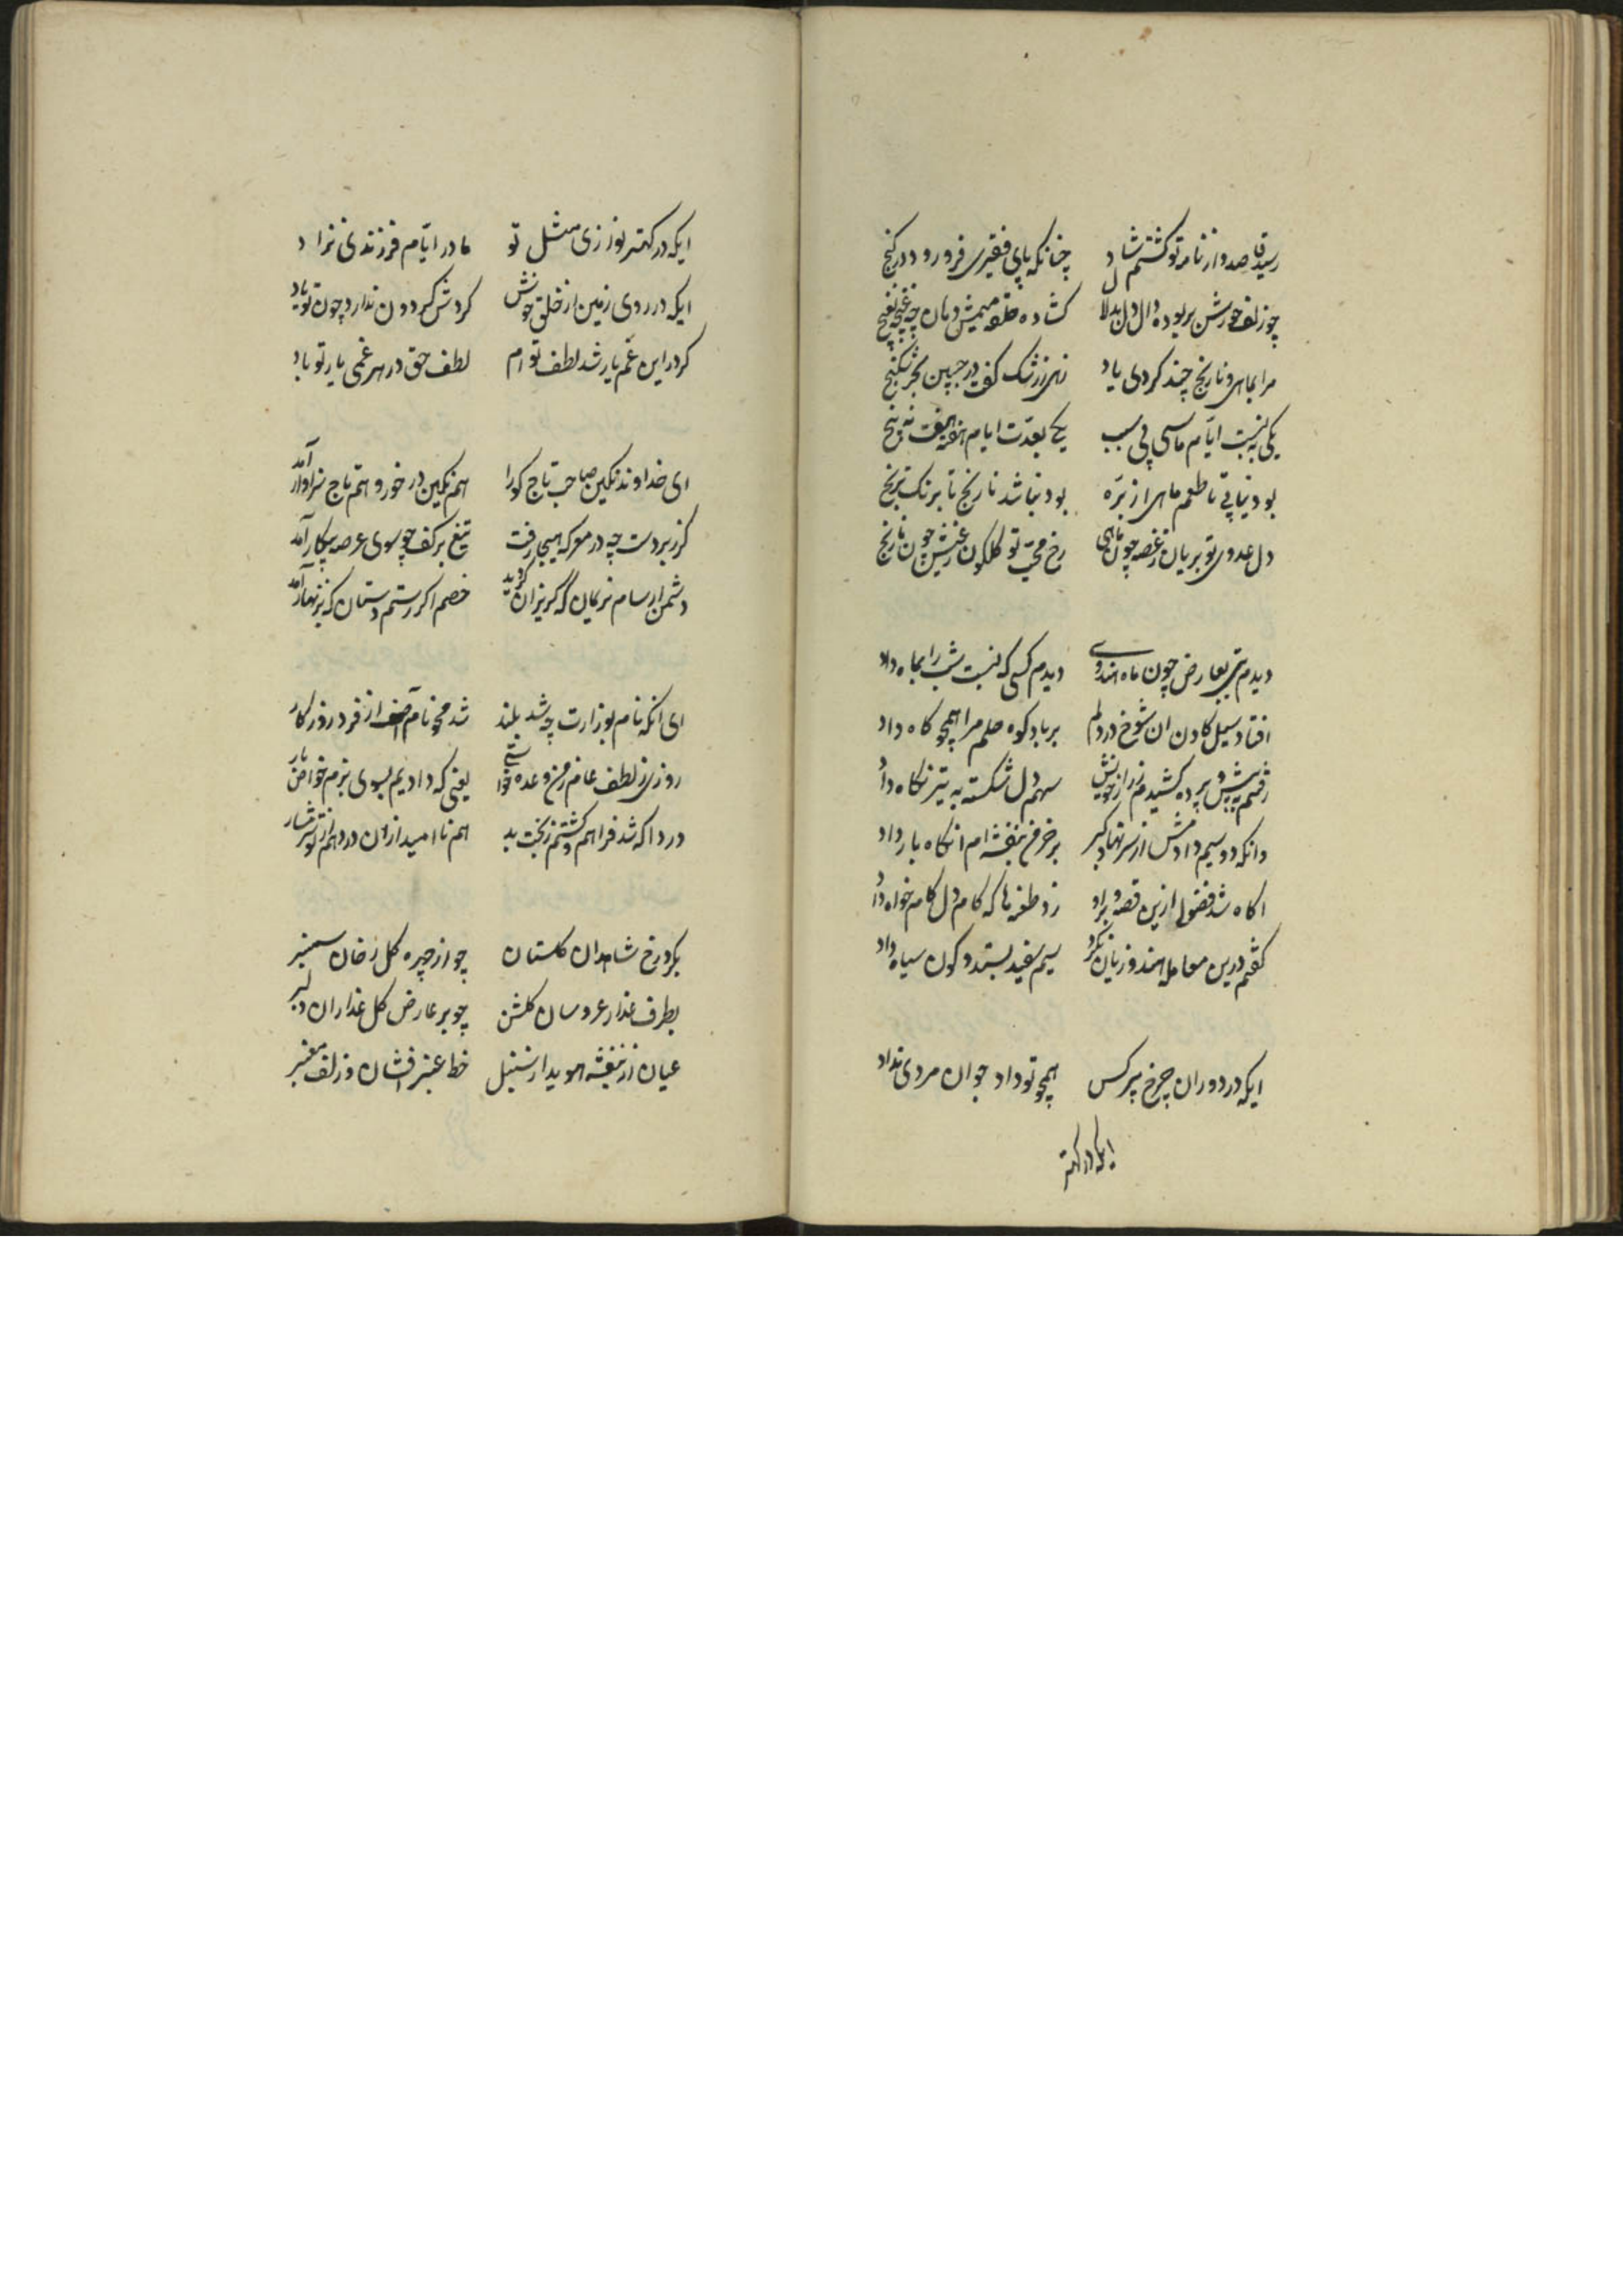 رسید قاصد و از نامه تو گشتم شاد چنانکه پای فقیری فرو رود در کنج
چو زلف حورشن بربوده دال دل بدلال کشاده حلقه میمش دهان چه غنچه بغنج
مرا بماهی و نارنج چند کردی یاد زهی ز رشک کفت در جبین بحر شکنج
یکی به نسبت ایام ماسی بی سبب یکی بعدت ایام هفته هفت نه پنج
بود نیابی تا طعم ماهی از بره بود نباشد نارنج تا برنک ترنج
دل عدوی تو بریان ز غصه چون ماهی رخ محب تو کلکون ز عیش چون نارنج
دیدم بتی بعارض چون ماه هندوی دیدم کسی که نسبت شب را بماه داد
افتاد سیل کادن ان شوخ در دلم برباد کوه حلم مرا همچو کاه داد
رفتم به پیش و پرده کشیدم ز راز خویش سهم دل شکسته به تیر نکاه داد
وانکه دو سیم دادمش از سر نهاد کبر بر خرمن بنفشه ام انکاه بار داد
اکاه شد فضولی ازین قصه و براو زد طعنه ها که کام دل کامخواه داد
کفتم درین معامله هندو زیان نکرد سیم سفید بستد و کون سیاه داد
ایکه در دوران چرخ پیر کس همچو تو داد جوان مردی نداد
ایکه در کهتر
ایکه در کهتر نوازی مثل تو مادر ایام فرزندی نزاد
ایکه در روی زمین از خلق خوش کردش کردون ندارد چون تو یاد
کر در این غم یار شد لطف تو ام لطف حق در هر غمی یار تو باد
ای خداوند نکین صاحب تاج کورا هم نکین در خور و هم تاج سزاوار آمد
کرز بر دست چه در معرکه هیجا رفت تیغ بر کف چو سوی عرصه پیکار آمد
دشمن ار سام نریمان که کریزان کردید خصم اکر رستم دستان که بزنهار آمد
ای انکه نام بوزارت چه شد بلند شد محو نام آصف از فرد روزکار
روزی ز لطف عام ز من وعده خواستی یعنی که دادیم بسوی بزم خواص بار
دردا که شد فراهم و کشتم ز بخت بد هم ناامید از ان در و هم از تو شرمسار
بکرد رخ شاهدان کلستان چو از چهره کل رخان سمنبر
بطرف عذار عروسان کلشن چو بر عارض کل عذاران دلبر
عیان از بنفشه هویدا ز سنبل خط عنبر افشان و زلف معنبر